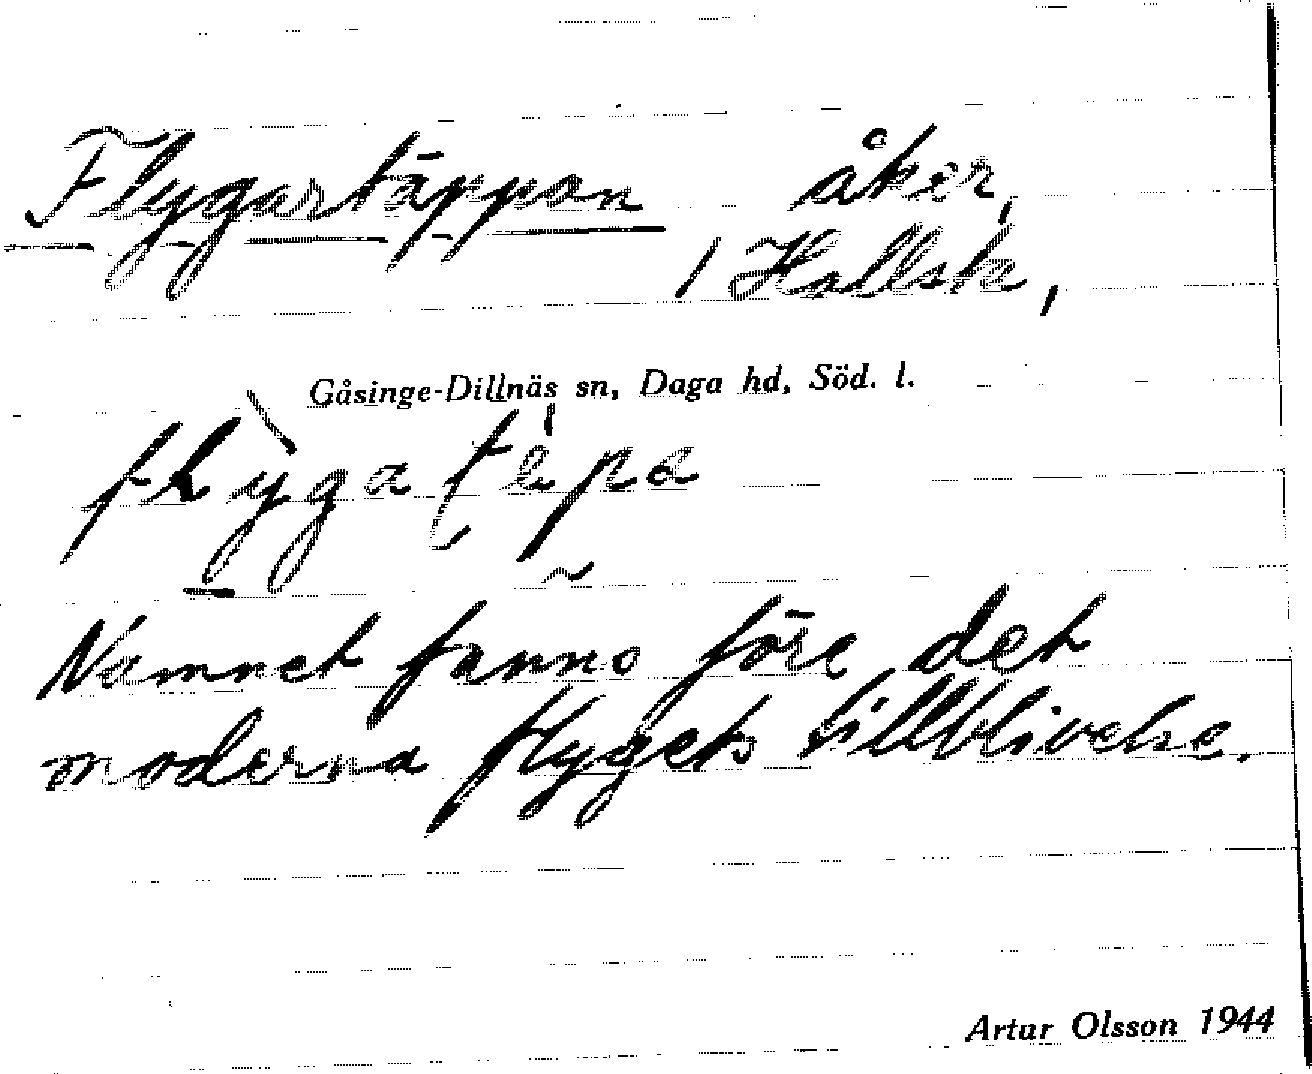 Flygartäppan åker,
1 Hallsta,
Gåsinge-Dillnäs sn, Daga hd, Söd. l.
flygatäpa
Namnet fanns före det
moderna flygets tillblivelse.
Artur Olsson 1944